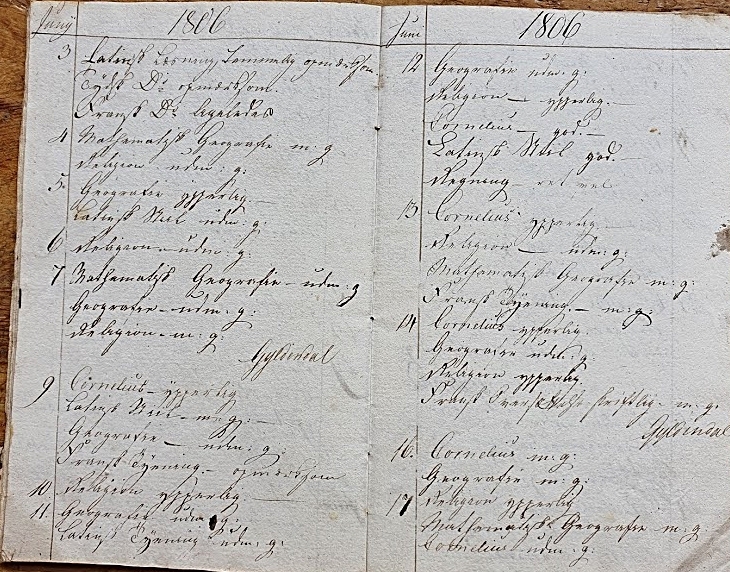 Junij 1806
3 Latinsk Læsning, temmelig opmærksom
Tydsk Do opmærksom.
Fransk Do ligeledes
4 Mathematisk Geografie m: g
Religion udm: g:
5. Geografie ypperlig.
Latinsk Stiil udm: g:
6 Religion - udm: g:
7 Mathematisk Geografie - udm: g
Geografie - udm: g:
Religion - m: g:
Gyldendal
9 Cornelius - ypperlig
Latinsk Stiil - m: g: -
Geografie - udm: g:
Fransk - opmærksom
10 Religion ypperlig
11 Geografie udm: g:
Latinsk udm: g:
Juni 1806
12 Geografie udm: g:
Religion - ypperlig. -
Cornelius - god. -
Latinsk Stiil god. -
Regning ret vel
13 Cornelius ypperlig
Religion - udm: g:
Mathematisk Geografie m: g:
Fransk - m: g:
14 Cornelius ypperlig
Geografie udm: g:
Religion ypperlig.
Fransk Oversættelse skriftlig - m: g.
Gyldendal
16. Cornelius m: g:
Geografie m: g:
17 Religion ypperlig
Mathematisk Geografie - m: g:
Cornelius udm: g: